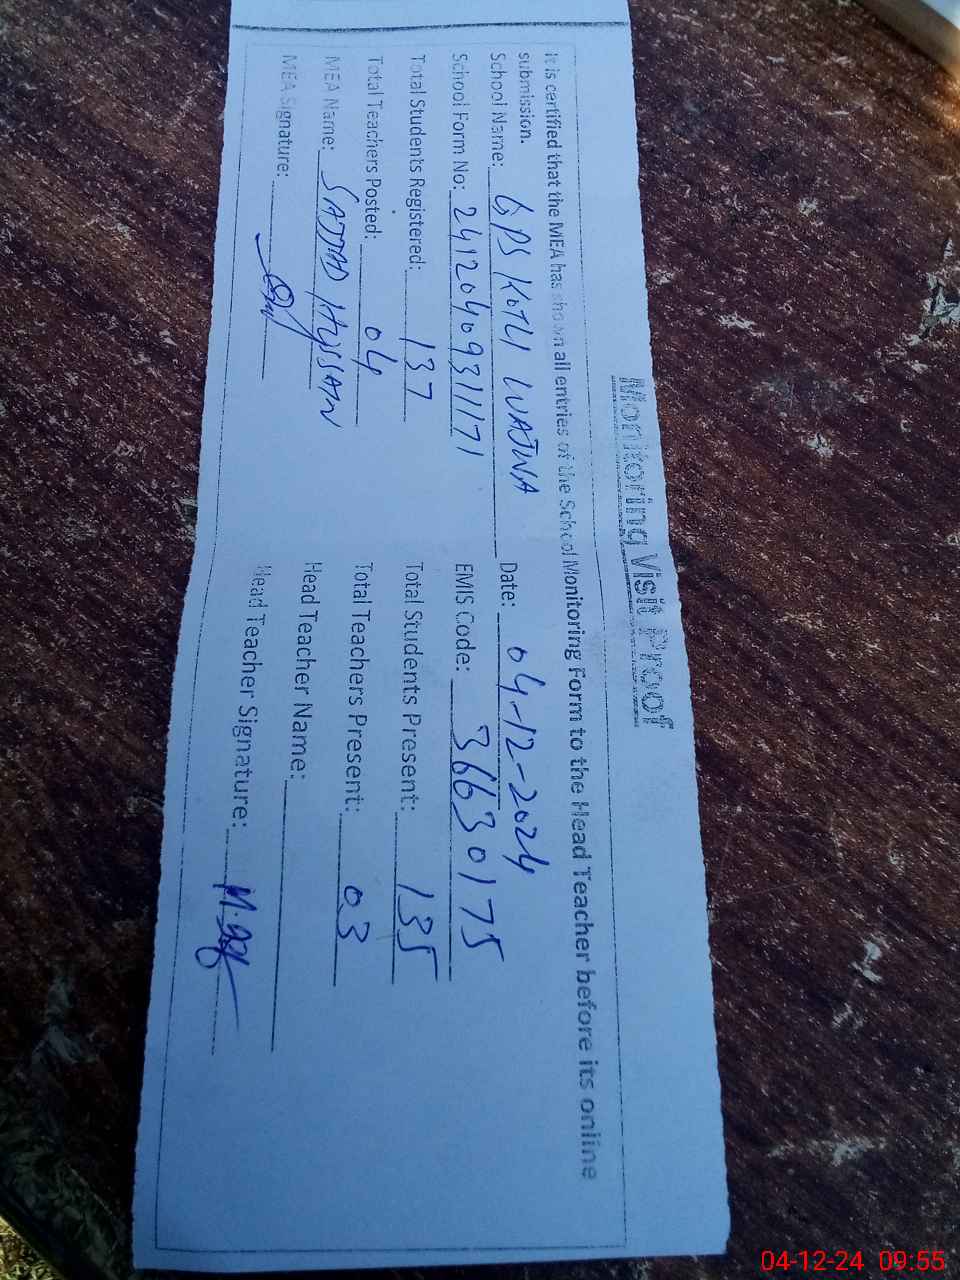 Monitoring Visit Proof
It is certified that the MEA has shown all entries of the School Monitoring Form to the Head Teacher before its online
submission.
School Name: GPS KOTLI WAJWA Date: 04-12-2024
School Form No: 2412040931171 EMIS Code: 36630175
Total Students Registered: 137 Total Students Present: 135
Total Teachers Posted: 04 Total Teachers Present: 03
MEA Name: SAJJAD HUSSAIN Head Teacher Name:
MEA Signature: Head Teacher Signature:
04-12-24 09:55